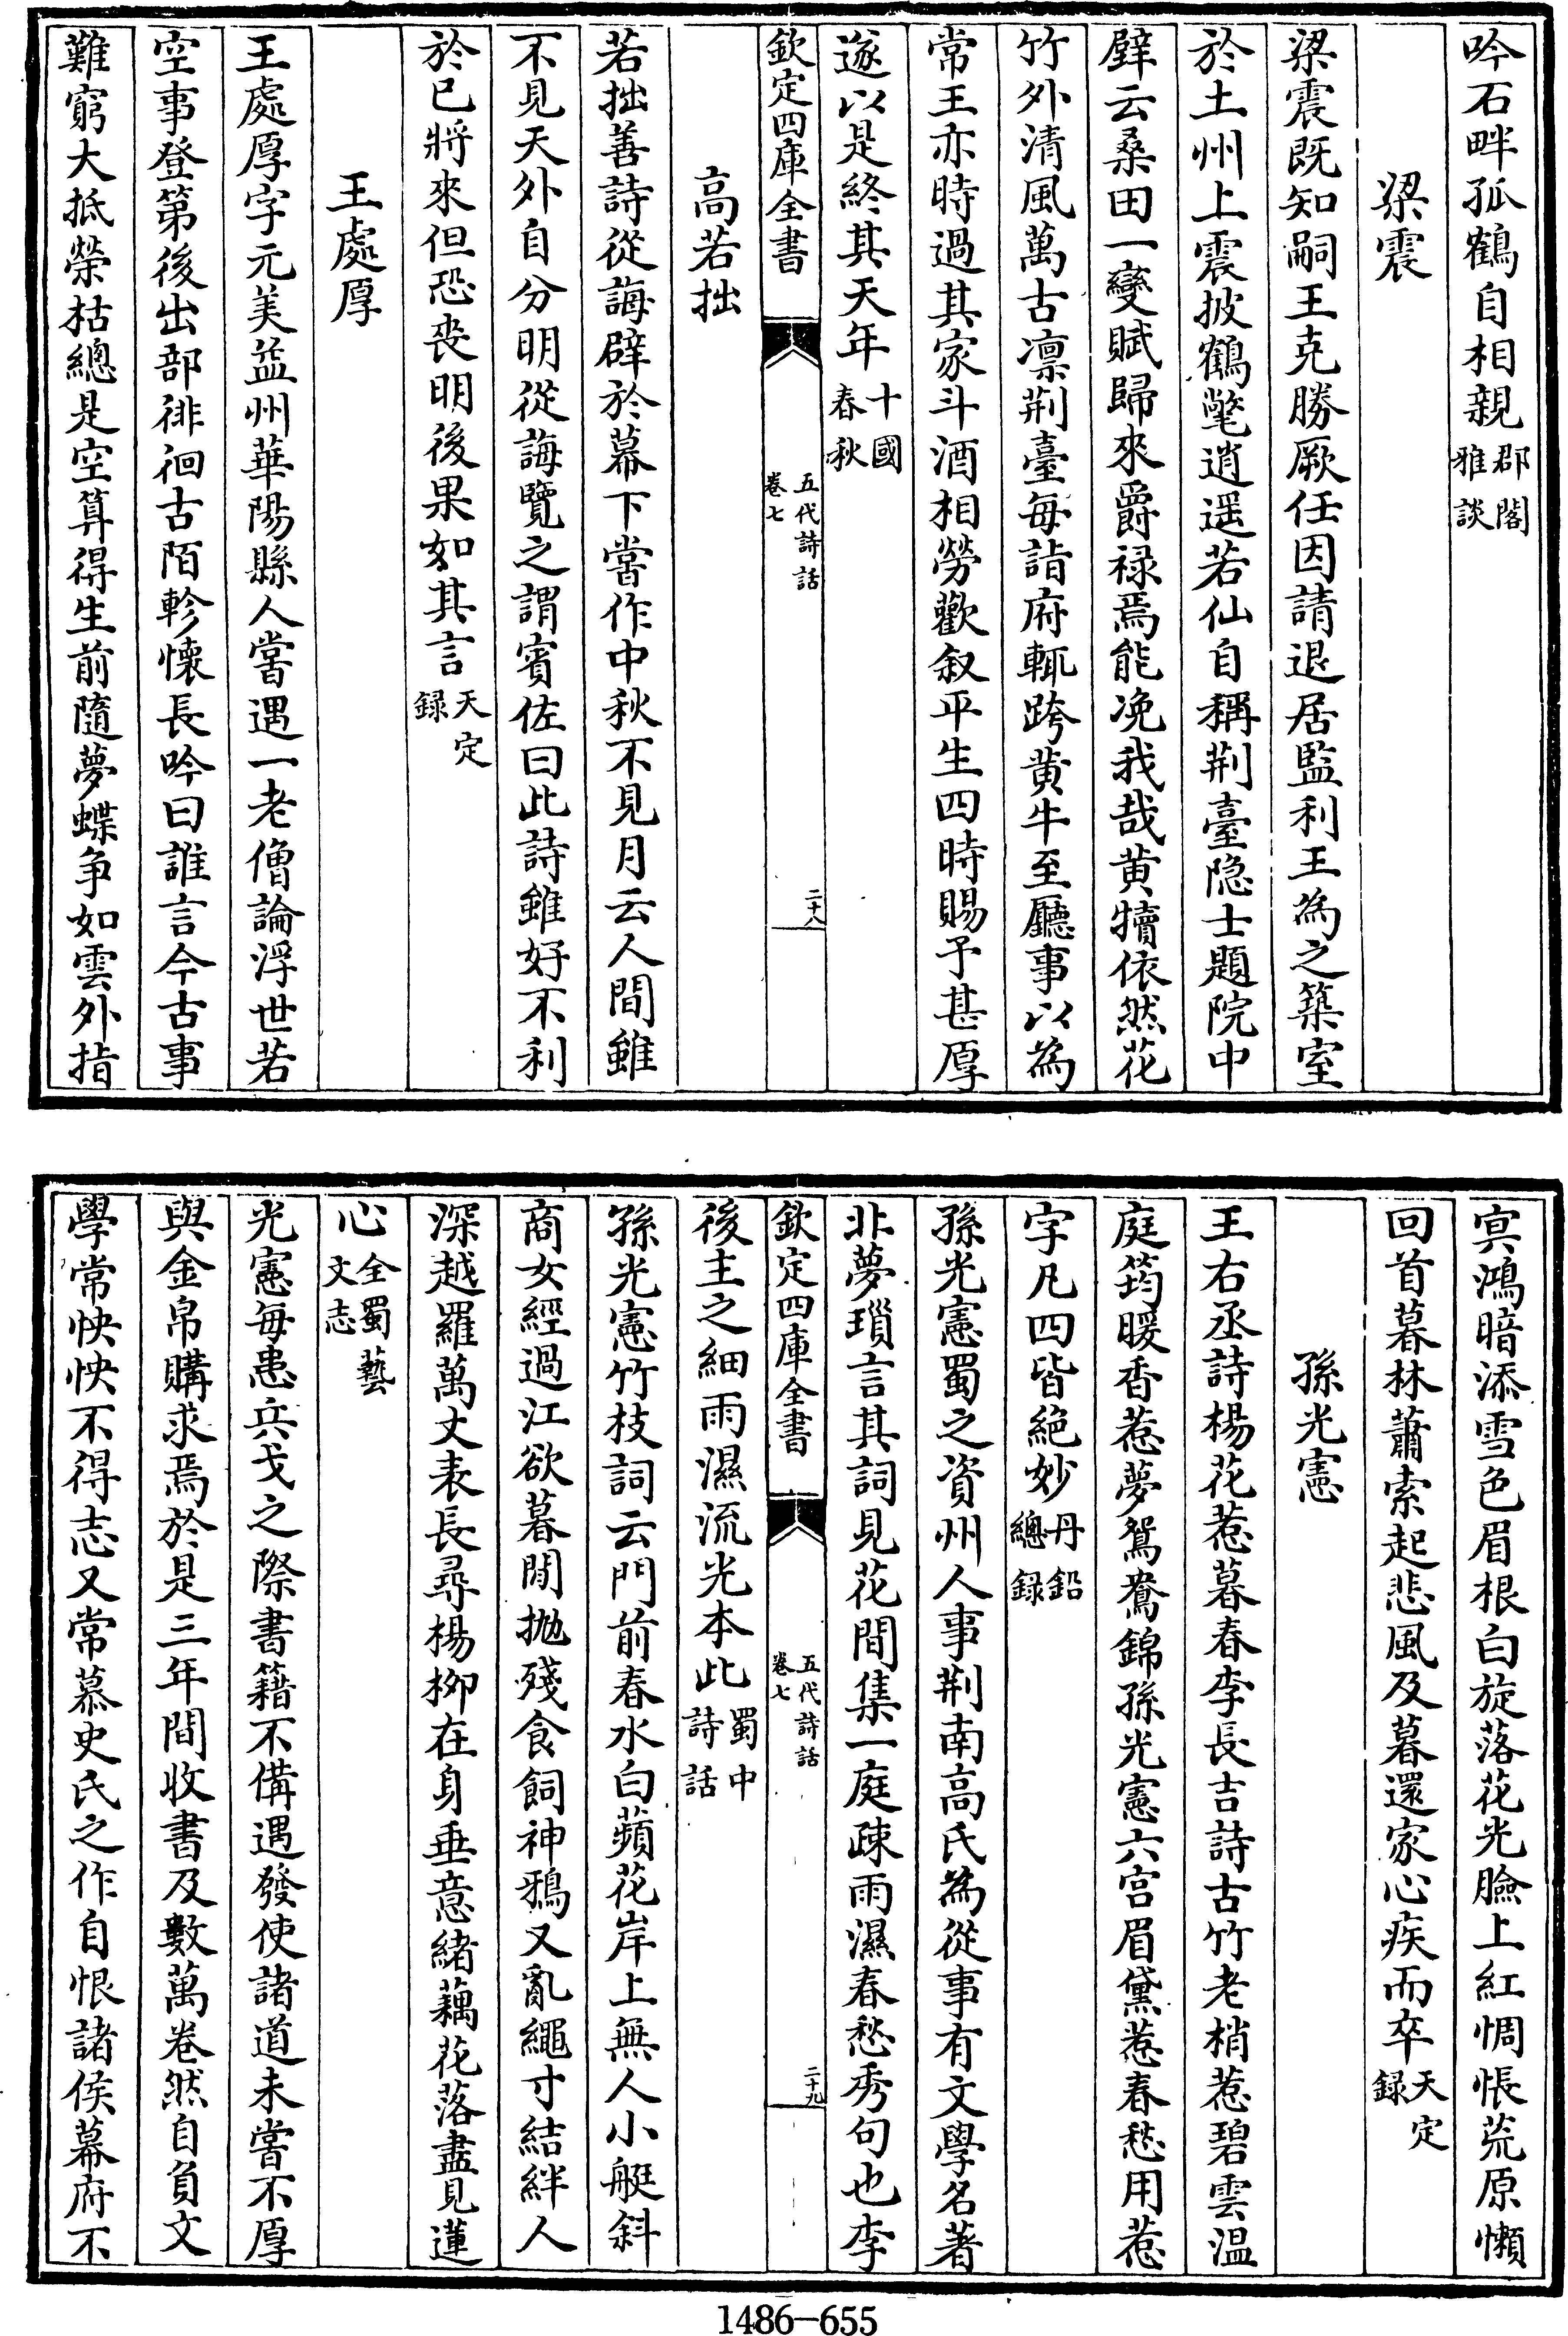 吟石畔孤鶴自相親郡閣雅談
梁震
梁震既知嗣王克勝厥任因請退居監利王為之築室
於土州上震披鶴氅逍遥若仙自稱荆臺隐士題院中
壁云桑田一變賦歸來爵禄焉能浼我哉黄犢依然花
竹外清風萬古凛荆臺每詣府輒跨黄牛至廳事以為
常王亦時過其家斗酒相勞歡叙平生四時賜予甚厚
遂以是終其天年十國春秋
欽定四庫全書
五代詩話
卷七
二十八
高若拙
若拙善詩從誨辟於幕下嘗作中秋不見月云人間雖
不見天外自分明從誨覽之謂賓佐曰此詩雖好不利
於已將來但恐丧明後果如其言天定録
王處厚
王處厚字元美益州華陽縣人嘗遇一老僧論浮世若
空事登第後出部徘徊古陌軫懷長吟曰誰言今古事
難窮大抵榮枯總是空算得生前隨夢蝶争如雲外指
㝠鴻暗添雪色眉根白旋落花光臉上紅惆悵荒原懶
回首暮林蕭索起悲風及暮還家心疾而卒天定録
孫光憲
王右丞詩楊花惹暮春李長吉詩古竹老梢惹碧雲温
庭筠暖香惹夢鴛鴦錦孫光憲六宫眉黛惹春愁用惹
字凡四皆絶妙丹鉛總録
孫光憲蜀之資州人事荆南高氏為從事有文學名著
北夢瑣言其詞見花間集一庭疎雨濕春愁秀句也李
欽定四庫全書
五代詩話
卷七
二十九
後主之細雨濕流光本此蜀中詩話
孫光憲竹枝詞云門前春水白蘋花岸上無人小艇斜
商女經過江欲暮閒抛殘食飼神鴉又亂繩寸結絆人
深越羅萬丈表長尋楊柳在身垂意緒藕花落盡見蓮
心全蜀藝文志
光憲每患兵戈之際書籍不備遇發使諸道未嘗不厚
與金帛購求焉於是三年間收書及數萬卷然自負文
學常怏怏不得志又常慕史氏之作自恨諸侯幕府不
1486-655